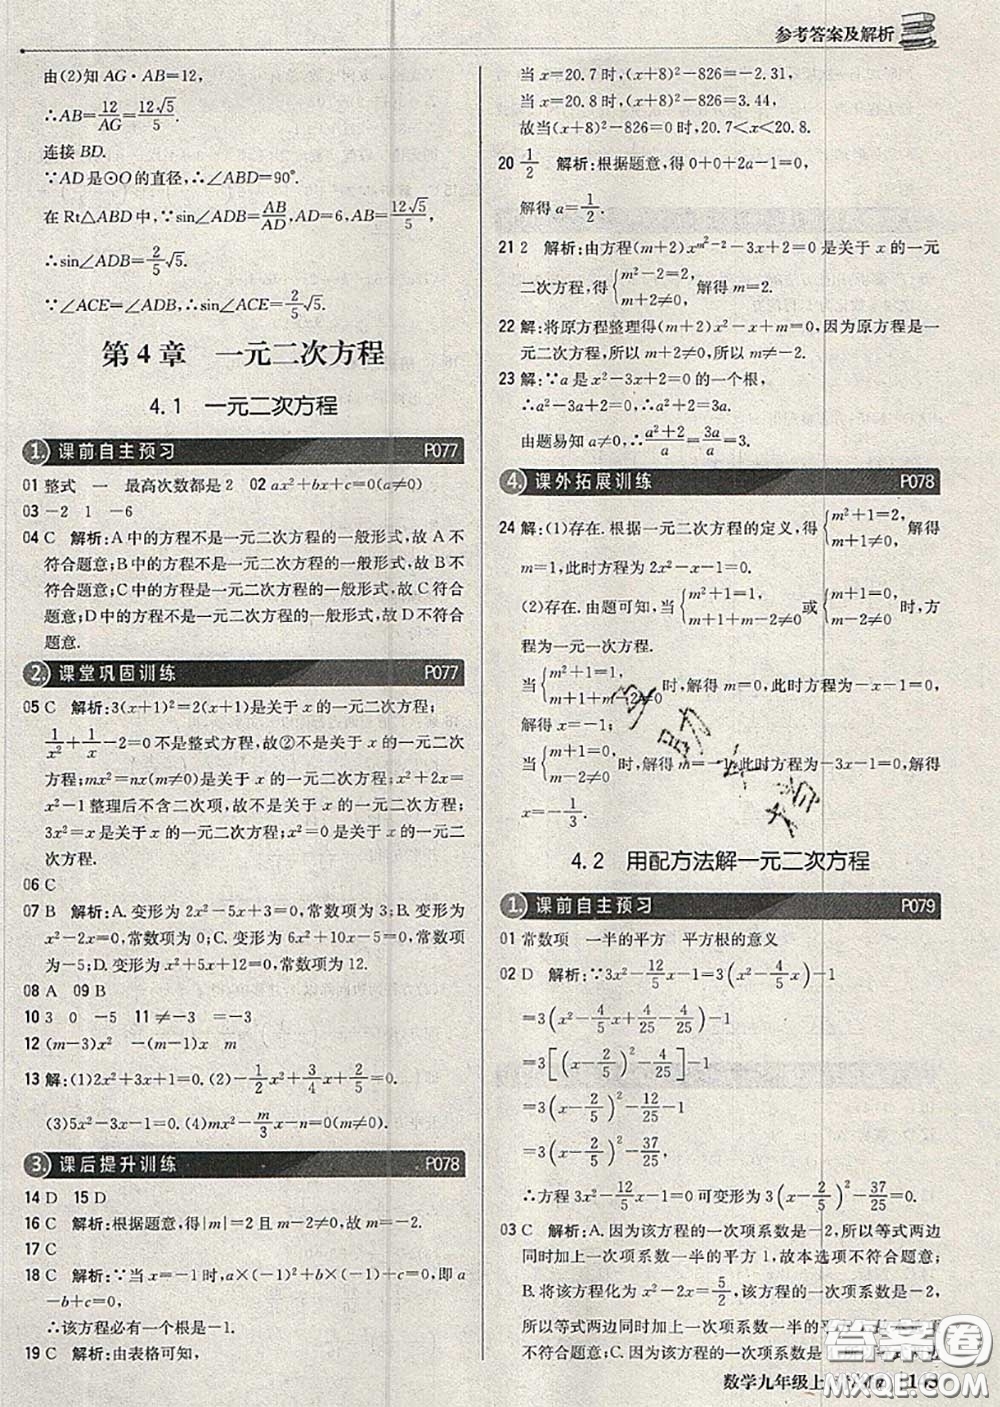 参考答案及解析
由(2)知 AG·AB=12,
∴AB=12/AG=12√5/5.
连接 BD.
∵AD 是⊙O 的直径,∴∠ABD=90°.
在 Rt△ABD 中,∵sin∠ADB=AB/AD,AD=6,AB=12√5/5,
∴sin∠ADB=2/5√5.
∵∠ACE=∠ADB,∴sin∠ACE=2/5√5.
第 4 章 一元二次方程
4.1 一元二次方程
1. 课前自主预习 P077
01 整式 一 最高次数都是 2 02 ax²+bx+c=0(a≠0)
03 -2 1 -6
04 C 解析:A 中的方程不是一元二次方程的一般形式,故 A 不
符合题意;B 中的方程不是一元二次方程的一般形式,故 B 不
符合题意;C 中的方程是一元二次方程的一般形式,故 C 符合
题意;D 中的方程不是一元二次方程的一般形式,故 D 不符合
题意.
2. 课堂巩固训练 P077
05 C 解析:3(x+1)²=2(x+1)是关于 x 的一元二次方程;
1/x²+1/x-2=0 不是整式方程,故②不是关于 x 的一元二次
方程;mx²=nx(m≠0)是关于 x 的一元二次方程;x²+2x=
x²-1 整理后不含二次项,故不是关于 x 的一元二次方程;
3x²=x 是关于 x 的一元二次方程.综上,共 3 个关于 x 的一元二
次方程.
06 C
07 B 解析:A.变形为 2x²-5x+3=0,常数项为 3;B.变形为
2x²-2x=0,常数项为 0;C.变形为 6x²+10x-5=0,常数项
为-5;D.变形为 x²+5x+12=0,常数项为 12.
08 A 09 B
10 3 0 -5 11 ≠-3 =-3
12 (m-3)x² -(m-1)x m
13 解:(1)2x²+3x+1=0.(2)-1/2x²+3/4x+2/5=0.
(3)5x²-3x-1=0.(4)mx²-m/3x-n=0(m≠0).
3. 课后提升训练 P078
14 D 15 D
16 C 解析:根据题意,得|m|=2 且 m-2≠0,故 m=-2.
17 C
18 C 解析:∵当 x=-1 时,a×(-1)²+b×(-1)+c=0,即 a
-b+c=0,
∴该方程必有一个根是-1.
19 C 解析:由表格可知,
当 x=20.7 时,(x+8)²-826=-2.31,
当 x=20.8 时,(x+8)²-826=3.44,
故当(x+8)²-826=0 时,20.7<x<20.8.
20 1/2 解析:根据题意,得 0+0+2a-1=0,
解得 a=1/2.
21 2 解析:由方程(m+2)x^(m²-2)-3x+2=0 是关于 x 的一元
二次方程,得{m²-2=2, m+2≠0,解得 m=2.
22 解:将原方程整理得(m+2)x²-x+m=0,因为原方程是一
元二次方程,所以 m+2≠0,所以 m≠-2.
23 解:∵a 是 x²-3x+2=0 的一个根,
∴a²-3a+2=0,∴a²+2=3a.
由题易知 a≠0,∴(a²+2)/a=3a/a=3.
4. 课外拓展训练 P078
24 解:(1)存在.根据一元二次方程的定义,得{m²+1=2, m+1≠0,解得
m=1,此时方程为 2x²-x-1=0.
(2)存在.由题可知,当{m²+1=1, m+1+m-2≠0或{m+1=0, m-2≠0时,方
程为一元一次方程.
当{m²+1=1, m+1+m-2≠0时,解得 m=0,此时方程为-x-1=0,
解得 x=-1;
当{m+1=0, m-2≠0时,解得 m=-1,此时方程为-3x-1=0,解得
x=-1/3.
4.2 用配方法解一元二次方程
1. 课前自主预习 P079
01 常数项 一半的平方 平方根的意义
02 D 解析:∵3x²-12/5x-1=3(x²-4/5x)-1
=3(x²-4/5x+4/25-4/25)-1
=3[(x-2/5)²-4/25]-1
=3(x-2/5)²-12/25-1
=3(x-2/5)²-37/25,
∴方程 3x²-12/5x-1=0 可变形为 3(x-2/5)²-37/25=0.
03 C 解析:A.因为该方程的一次项系数是-2,所以等式两边
同时加上一次项系数一半的平方 1,故本选项不符合题意;
B.将该方程化为 x²-2x=5/2,该方程的一次项系数是-2,
所以等式两边同时加上一次项系数一半的平方
题意;C.因为该方程的一次项系数是
答案圈
数学九年级上